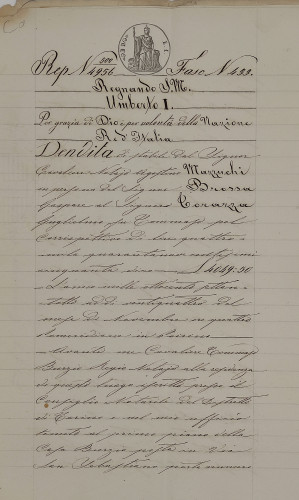 Rep N° 4956 Fasc N. 433.
Regnando S. M.
Umberto I.
Per grazia di Dio e per volontà della Nazione
Re d'Italia
Vendita di stabile dal Signor
Cavaliere Notajo Agostino Mazzuchi
in persona del Signor Brossa
Gaspare al Signor Corazza
Guglielmo fu Tommaso pel
corrispettivo di lire quattro
mila quarantanove
cinquanta £ 4049.50
L'anno mille ottocento settan-
totto addì ventiquattro del
mese di Novembre in
Avanti me Cavaliere Tommaso
Burzio Regio Notajo alla residenza
di questo luogo iscritto presso il
Consiglio Notarile del Distretto
di Torino e nel mio ufficio
tenuto al primo piano della
Casa Burzio posta in Via
San Sebastiano porta numero